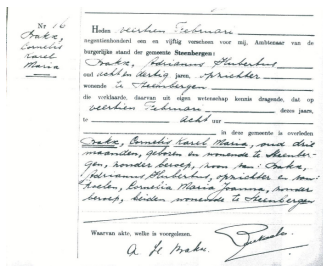 Nr 16
Bakx,
Cornelis
Karel
Maria
Heden veertien Februari
negentienhonderd een en vijftig verscheen voor mij, Ambtenaar van de
burgerlijke stand der gemeente Steenbergen:
Bakx, Adrianus Hubertus
oud acht en dertig jaren, opzichter
wonende te Steenbergen
die verklaarde, daarvan uit eigen wetenschap kennis dragende, dat op
veertien Februari dezes jaars,
te acht uur
in deze gemeente is overleden
Bakx, Cornelis Karel Maria, oud drie
maanden, geboren en wonende te Steenber-
gen, zonder beroep, zoon van: Bakx,
Adrianus Hubertus, opzichter en van
Cornelia Maria Joanna, zonder
beroep, beiden wonende te Steenbergen
Waarvan akte, welke is voorgelezen.
A. H. Bakx